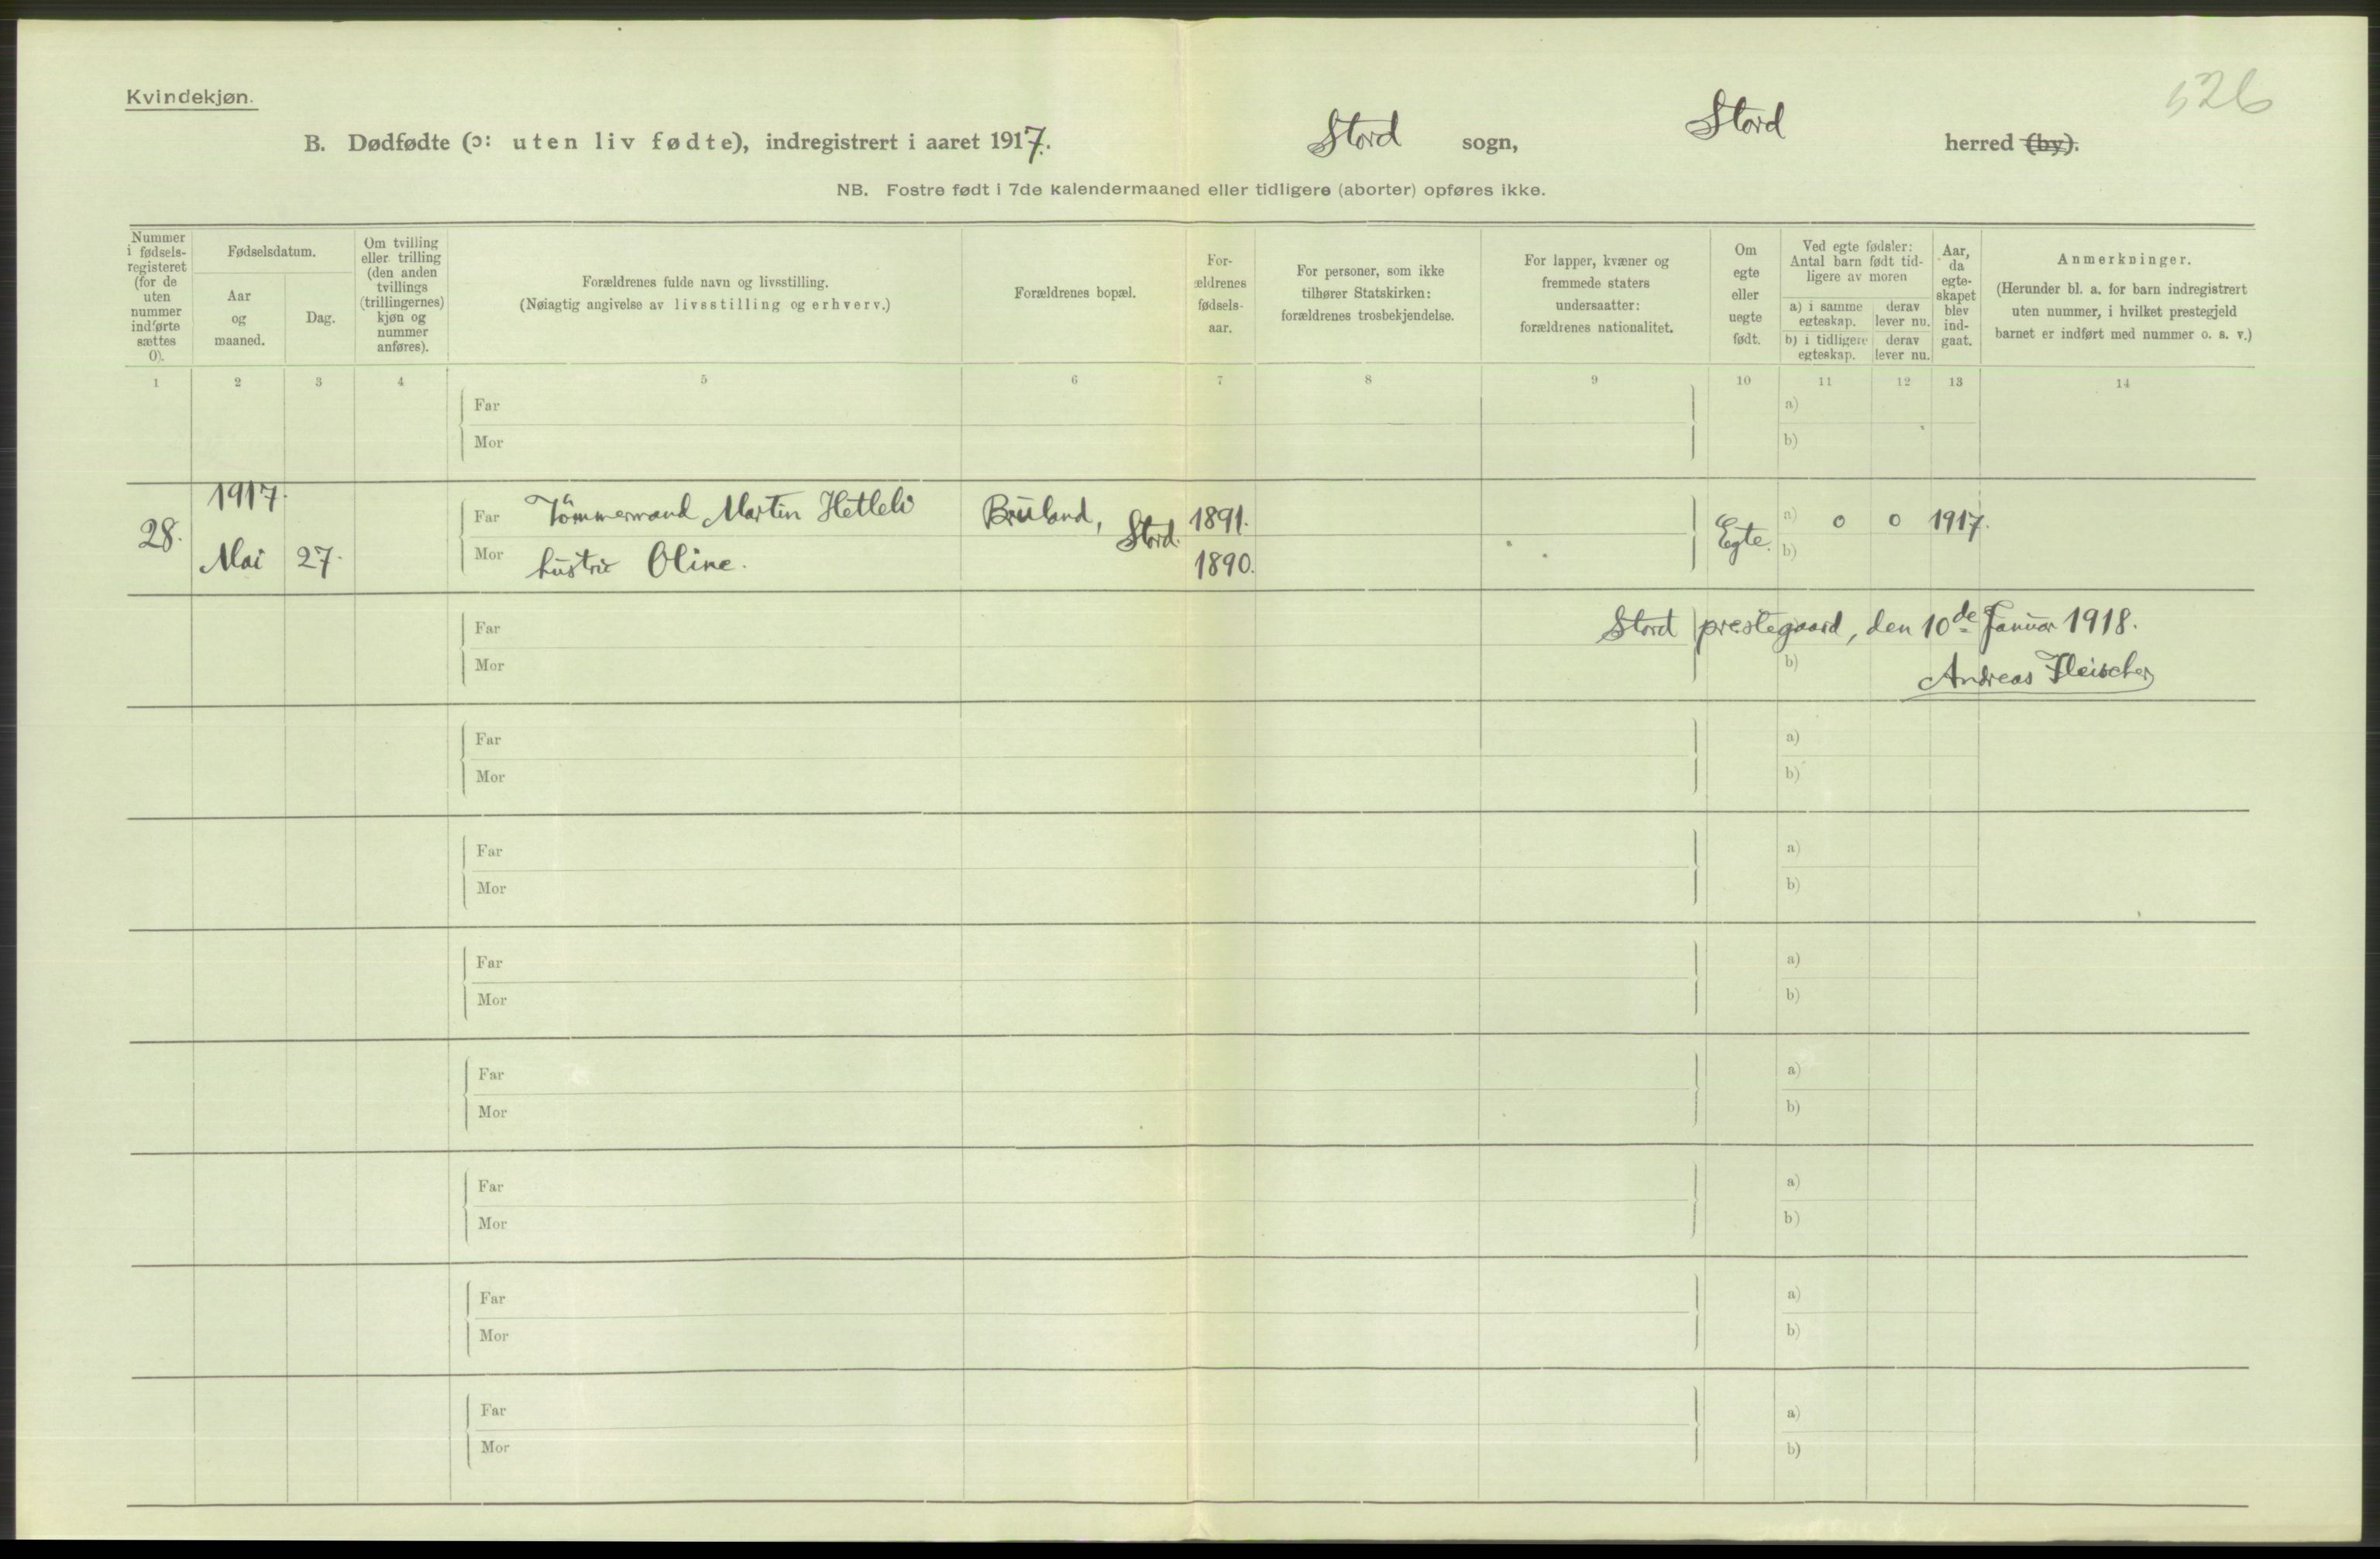 Kvindekjøn.
526
B. Dødfødte (ɔ: uten liv fødte), indregistrert i aaret 1917. Stord sogn, Stord herred (by).
NB. Fostre født i 7de kalendermaaned eller tidligere (aborter) opføres ikke.
Nummer
i fødsels-
registeret
(for de
uten
nummer
indførte
sættes
0).
Fødselsdatum.
Aar
og
maaned.
Dag.
Om tvilling
eller trilling
(den anden
tvillings
(trillingernes)
kjøn og
nummer
anføres).
Forældrenes fulde navn og livsstilling.
(Nøiagtig angivelse av livsstilling og erhverv.)
Forældrenes bopæl.
For-
ældrenes
fødsels-
aar.
For personer, som ikke
tilhører Statskirken:
forældrenes trosbekjendelse.
For lapper, kvæner og
fremmede staters
undersaatter:
forældrenes nationalitet.
Om
egte
eller
uegte
født.
Ved egte fødsler:
Antal barn født tid-
ligere av moren
a) i samme
egteskap.
derav
lever nu.
b) i tidligere
egteskap.
derav
lever nu.
Aar,
da
egte-
skapet
blev
ind-
gaat.
Anmerkninger.
(Herunder bl. a. for barn indregistrert
uten nummer, i hvilket prestegjeld
barnet er indført med nummer o. s. v.)
1 2 3 4 5 6 7 8 9 10 11 12 13 14
Far a)
Mor b)
1917.
28. Mai 27.
Far Tömmermand Martin Hetleli Bruland, Stord. 1891. Egte. a) 0 0 1917.
Mor hustru Oline. 1890. b)
Far Stord prestegaard, den 10de Januar 1918.
Mor b) Andreas Fleischer
Far a)
Mor b)
Far a)
Mor b)
Far a)
Mor b)
Far a)
Mor b)
Far a)
Mor b)
Far a)
Mor b)
Far a)
Mor b)